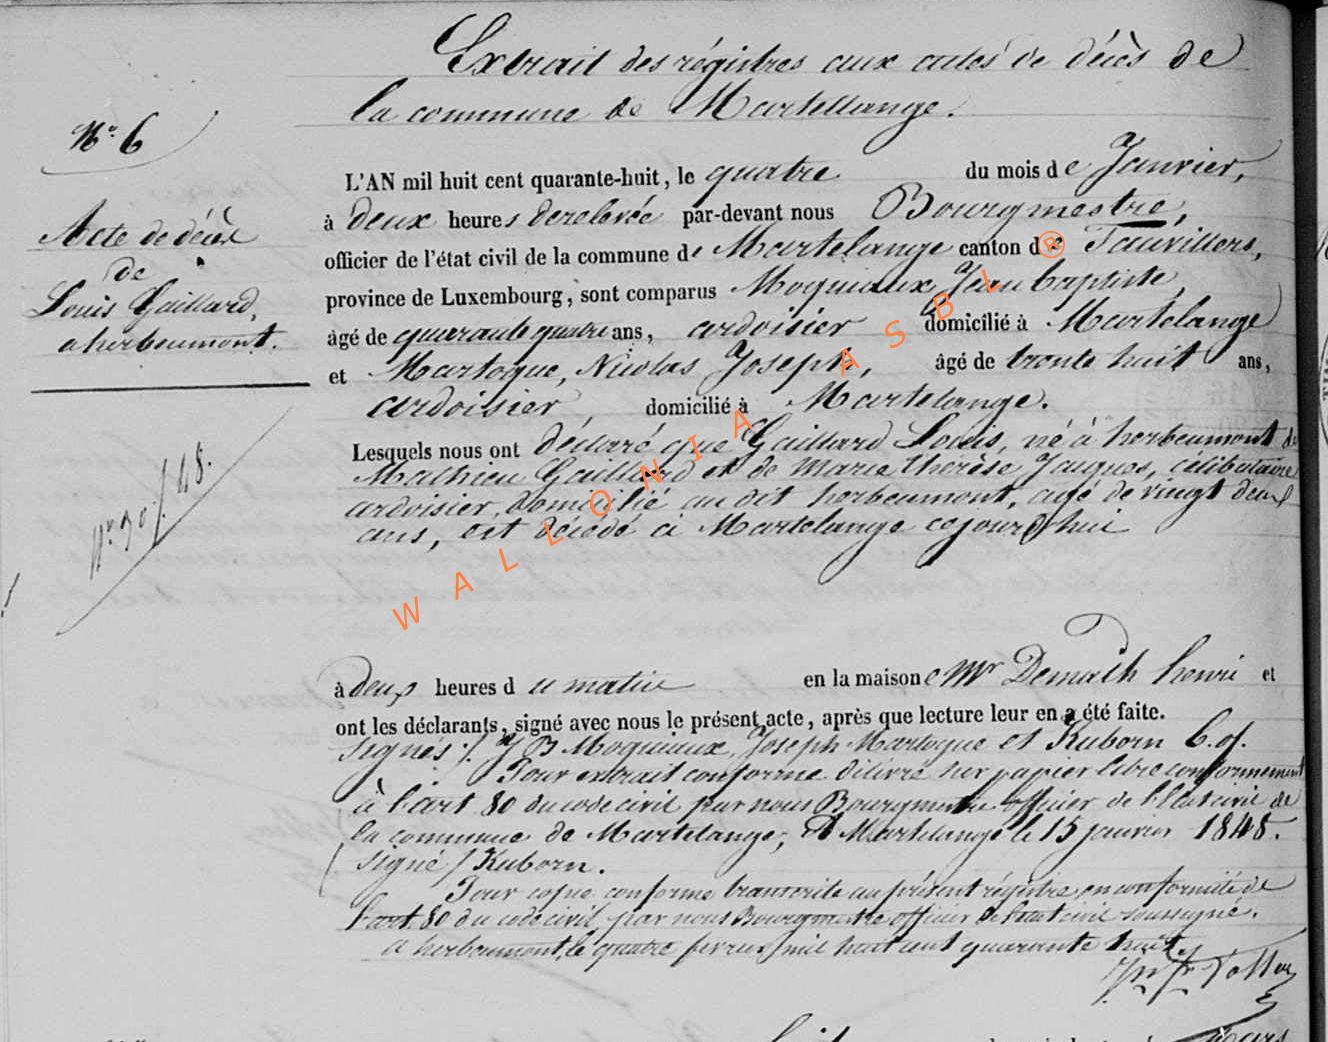 Extrait des régistres aux actes de décès de
la commune de Martellange.
N° 6
L'AN mil huit cent quarante-huit, le quatre du mois de Janvier,
à deux heures derelevée par-devant nous Bourgmestre,
officier de l'état civil de la commune de Martelange canton de Fauvillers,
province de Luxembourg, sont comparus Moquiaux, Jean baptiste
âgé de quarante quatre ans, ardoisier domicilié à Martelange
et Martoque, Nicolas Joseph, âgé de trente huit ans,
ardoisier, domicilié à Martelange.
Acte de décès
de
Louis Gaillard,
a herbeumont.
N° 30 / 48.
Lesquels nous ont déclaré que Gaillard Louis, né à herbeumont de
Mathieu Gaillard et de Marie thérèse Jacques, célibataire
ardoisier, domicilié au dit herbeumont, agé de vingt deux
ans, est décédé à Martelange cejourd'hui
à deux heures du matin en la maison Mr Demath henri et
ont les déclarants, signé avec nous le présent acte, après que lecture leur en a été faite.
signés :/. J B Moquiaux, Joseph Martoque et Kuborn
Pour extrait conforme délivré sur papier libre conformement
à l'art 80 du code civil par nous Bourgmestre officier de l'état civil de
la commune de Martelange, à Martelange le 15 janvier 1848.
signé / Kuborn.
Pour copie conforme transcrite au présent régistre, en conformité de
l'art. 80 du code civil par nous Bourgmestre officier de l'état civil soussigné.
a herbeumont, le quatre fevrier mil huit cent quarante huit.
WALLONIA ASBL ®